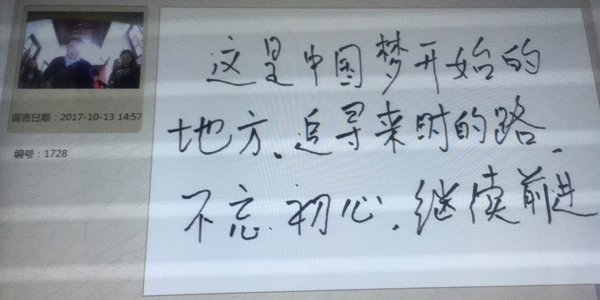 这是中国梦开始的
地方、追寻来时的路.
不忘.初心.继续前进
留言日期：2017-10-13 14:57
编号：1728